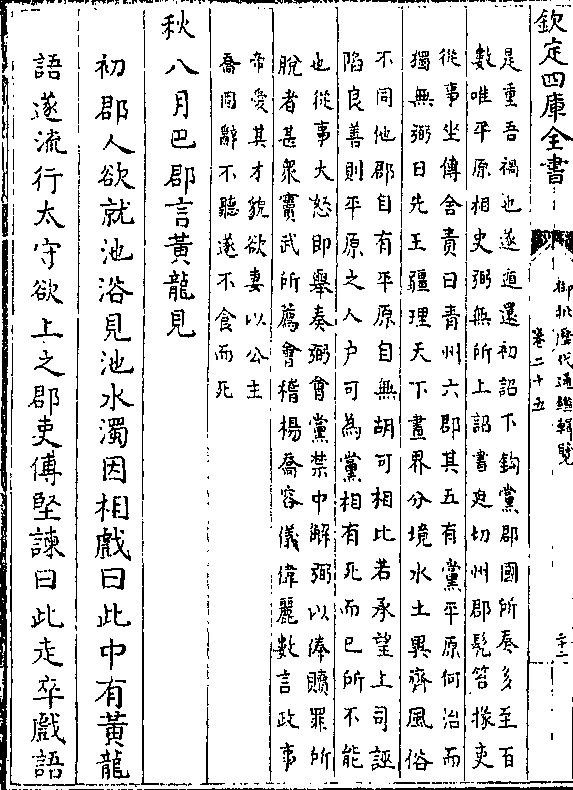 欽定四庫全書
御批歷代通鑑輯覽
卷二十五
是重吾禍也遂遁還初詔下鈎黨郡國所奏多至百
數唯平原相史弼無所上詔書迫切州郡髡笞掾吏
從事坐傳舍責曰青州六郡其五有黨平原何治而
獨無弼曰先王疆理天下畫界分境水土異齊風俗
不同他郡自有平原自無胡可相比若承望上司誣
陷良善則平原之人户可為黨相有死而已所不能
也從事大怒即舉奏弼會黨禁中解弼以俸贖罪所
脫者甚衆竇武所薦會稽楊喬容儀偉麗數言政事
帝愛其才貌欲妻以公主
喬固辭不聽遂不食而死
秋八月巴郡言黃龍見
初郡人欲就池浴見池水濁因相戲曰此中有黃龍
語遂流行太守欲上之郡吏傅堅諫曰此走卒戲語